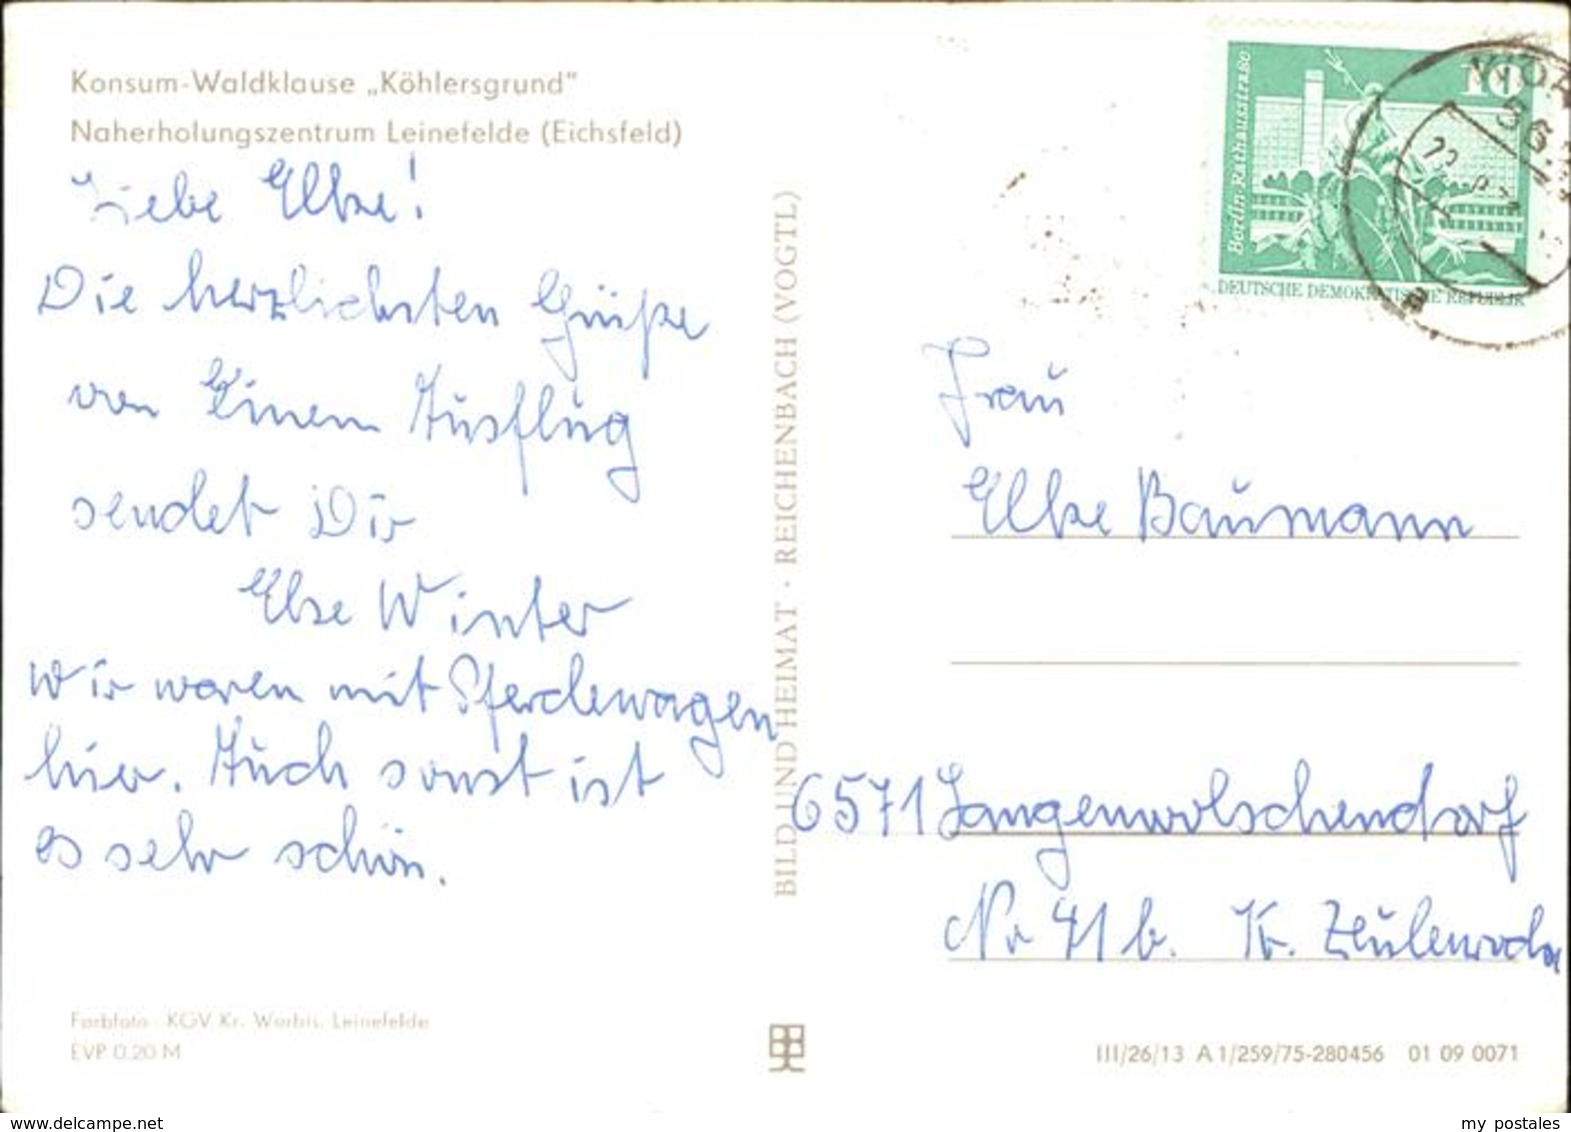 Konsum-Waldklause „Köhlersgrund"
Naherholungszentrum Leinefelde (Eichsfeld)
Liebe Elke!
Die herzlichsten Grüße
von Einem Ausflug
sendet Dir
Else Winter
Wir waren mit Pferdewagen
hier. Auch sonst ist
es sehr schön.
Farbfoto: KGV Kr. Worbis, Leinefelde
EVP 0.20 M
BILD UND HEIMAT · REICHENBACH (VOGTL)
10
Berlin-Rathausstraße
DEUTSCHE DEMOKRATISCHE REPUBLIK
Frau
Elke Baumann
6571 Langenwolschendorf
Nr 41 b. Kr. Zeulenroda
III/26/13 A 1/259/75-280456 01 09 0071
www.delcampe.net
my postales